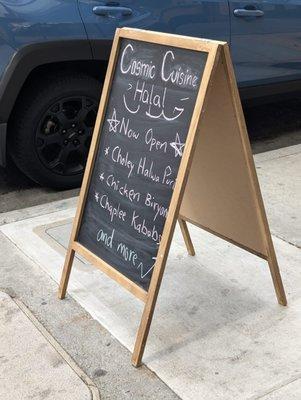 Cosmic Cuisine
Halal
☆ Now Open ☆
* Choley Halwa Puri
* Chicken Biryani
* Chaplee Kababs
and more